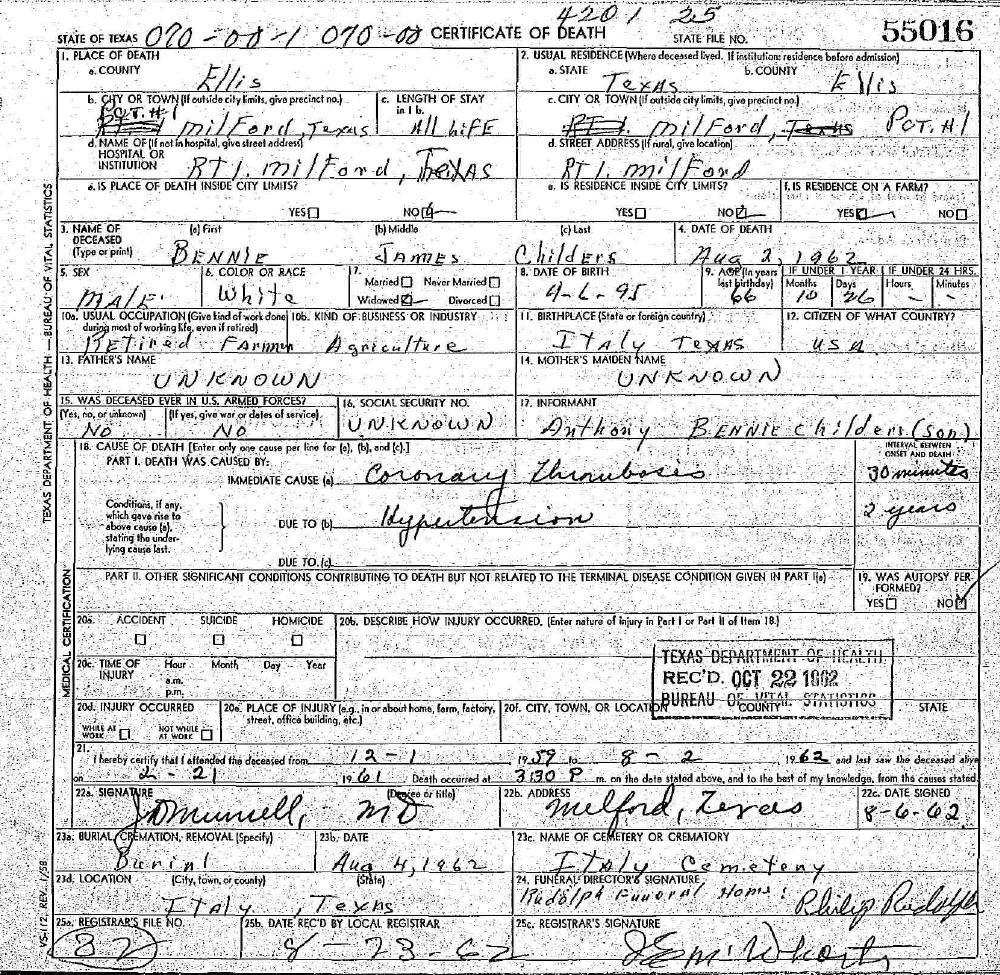 4201 25
STATE OF TEXAS 070-00-1 070-00 CERTIFICATE OF DEATH STATE FILE NO. 55016
1. PLACE OF DEATH
a. COUNTY
Ellis
2. USUAL RESIDENCE (Where deceased lived. If institution: residence before admission)
a. STATE b. COUNTY
Texas Ellis
b. CITY OR TOWN (If outside city limits, give precinct no.)
PCT. #1
Milford, Texas
c. LENGTH OF STAY in 1 b.
All LiFE
c. CITY OR TOWN (If outside city limits, give precinct no.)
RT 1. MilFord, Texas PCT. #1
d. NAME OF (If not in hospital, give street address)
HOSPITAL OR
INSTITUTION
RT 1. MilFord, Texas
d. STREET ADDRESS (If rural, give location)
RT 1. MilFord
e. IS PLACE OF DEATH INSIDE CITY LIMITS?
YES NO
e. IS RESIDENCE INSIDE CITY LIMITS?
YES NO
f. IS RESIDENCE ON A FARM?
YES NO
3. NAME OF
DECEASED
(Type or print)
(a) First (b) Middle (c) Last
BENNIE JAMES Childers
4. DATE OF DEATH
Aug 2, 1962
5. SEX
MALE
6. COLOR OR RACE
White
7.
Married Never Married
Widowed Divorced
8. DATE OF BIRTH
9. AGE (In years last birthday)
66
IF UNDER 1 YEAR
Months Days
10 26
IF UNDER 24 HRS.
Hours Minutes
- -
10a. USUAL OCCUPATION (Give kind of work done during most of working life, even if retired)
Retired Farmer
10b. KIND OF BUSINESS OR INDUSTRY
Agriculture
11. BIRTHPLACE (State or foreign country)
Italy Texas
12. CITIZEN OF WHAT COUNTRY?
USA
13. FATHER'S NAME
UNKNOWN
14. MOTHER'S MAIDEN NAME
UNKNOWN
15. WAS DECEASED EVER IN U.S. ARMED FORCES?
(Yes, no, or unknown) (If yes, give war or dates of service)
No No
16. SOCIAL SECURITY NO.
UNKNOWN
17. INFORMANT
Anthony BENNIE Childers (Son)
18. CAUSE OF DEATH [Enter only one cause per line for (a), (b), and (c).]
INTERVAL BETWEEN ONSET AND DEATH
PART I. DEATH WAS CAUSED BY:
IMMEDIATE CAUSE (a) Coronary Thrombosis 30 minutes
Conditions, if any,
which gave rise to
above cause (a),
stating the under-
lying cause last.
DUE TO (b) Hypertension 2 years
DUE TO (c)
PART II. OTHER SIGNIFICANT CONDITIONS CONTRIBUTING TO DEATH BUT NOT RELATED TO THE TERMINAL DISEASE CONDITION GIVEN IN PART I(a)
19. WAS AUTOPSY PERFORMED?
YES NO
20a. ACCIDENT SUICIDE HOMICIDE
20b. DESCRIBE HOW INJURY OCCURRED. (Enter nature of injury in Part I or Part II of Item 18.)
20c. TIME OF INJURY
Hour Month Day Year
a.m.
p.m.
TEXAS DEPARTMENT OF HEALTH
REC'D. OCT 22 1962
BUREAU OF VITAL STATISTICS
20d. INJURY OCCURRED
WHILE AT WORK NOT WHILE AT WORK
20e. PLACE OF INJURY (e.g., in or about home, farm, factory, street, office building, etc.)
20f. CITY, TOWN, OR LOCATION COUNTY STATE
21.
I hereby certify that I attended the deceased from 12-1 1959 to 8-2 1962 and last saw the deceased alive
on 2-21 1961 Death occurred at 3:30 P m. on the date stated above, and to the best of my knowledge, from the causes stated.
22a. SIGNATURE (Degree or title)
MD
22b. ADDRESS
Milford, Texas
22c. DATE SIGNED
8-6-62
23a. BURIAL, CREMATION, REMOVAL (Specify)
Burial
23b. DATE
Aug 4, 1962
23c. NAME OF CEMETERY OR CREMATORY
Italy Cemetery
23d. LOCATION (City, town, or county) (State)
Italy, Texas
24. FUNERAL DIRECTOR'S SIGNATURE
Rudolph Funeral Home: Philip Rudolph
25a. REGISTRAR'S FILE NO.
32
25b. DATE REC'D BY LOCAL REGISTRAR
8-23-62
25c. REGISTRAR'S SIGNATURE
TEXAS DEPARTMENT OF HEALTH — BUREAU OF VITAL STATISTICS
MEDICAL CERTIFICATION
VS-112, REV. 1/58